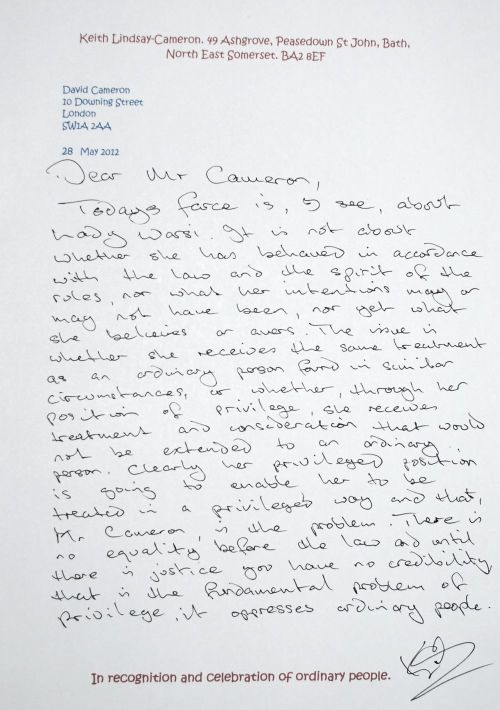 Keith Lindsay-Cameron. 49 Ashgrove, Peasedown St John, Bath,
North East Somerset. BA2 8EF
David Cameron
10 Downing Street
London
SW1A 2AA
28 May 2012
Dear Mr Cameron,
Todays farce is, I see, about
Lady Warsi. It is not about
whether she has behaved in accordance
with the law and the spirit of the
rules, nor what her intentions may or
may not have been, nor yet what
she believes or avers. The issue is
whether she receives the same treatment
as an ordinary person found in similar
circumstances, or whether, through her
position of privilege, she receives
treatment and consideration that would
not be extended to an ordinary
person. Clearly her privileged position
is going to enable her to be
treated in a privileged way and that,
Mr Cameron, is the problem. There is
no equality before the law and until
there is justice you have no credibility,
that is the fundamental problem of
privilege, it oppresses ordinary people.
In recognition and celebration of ordinary people.